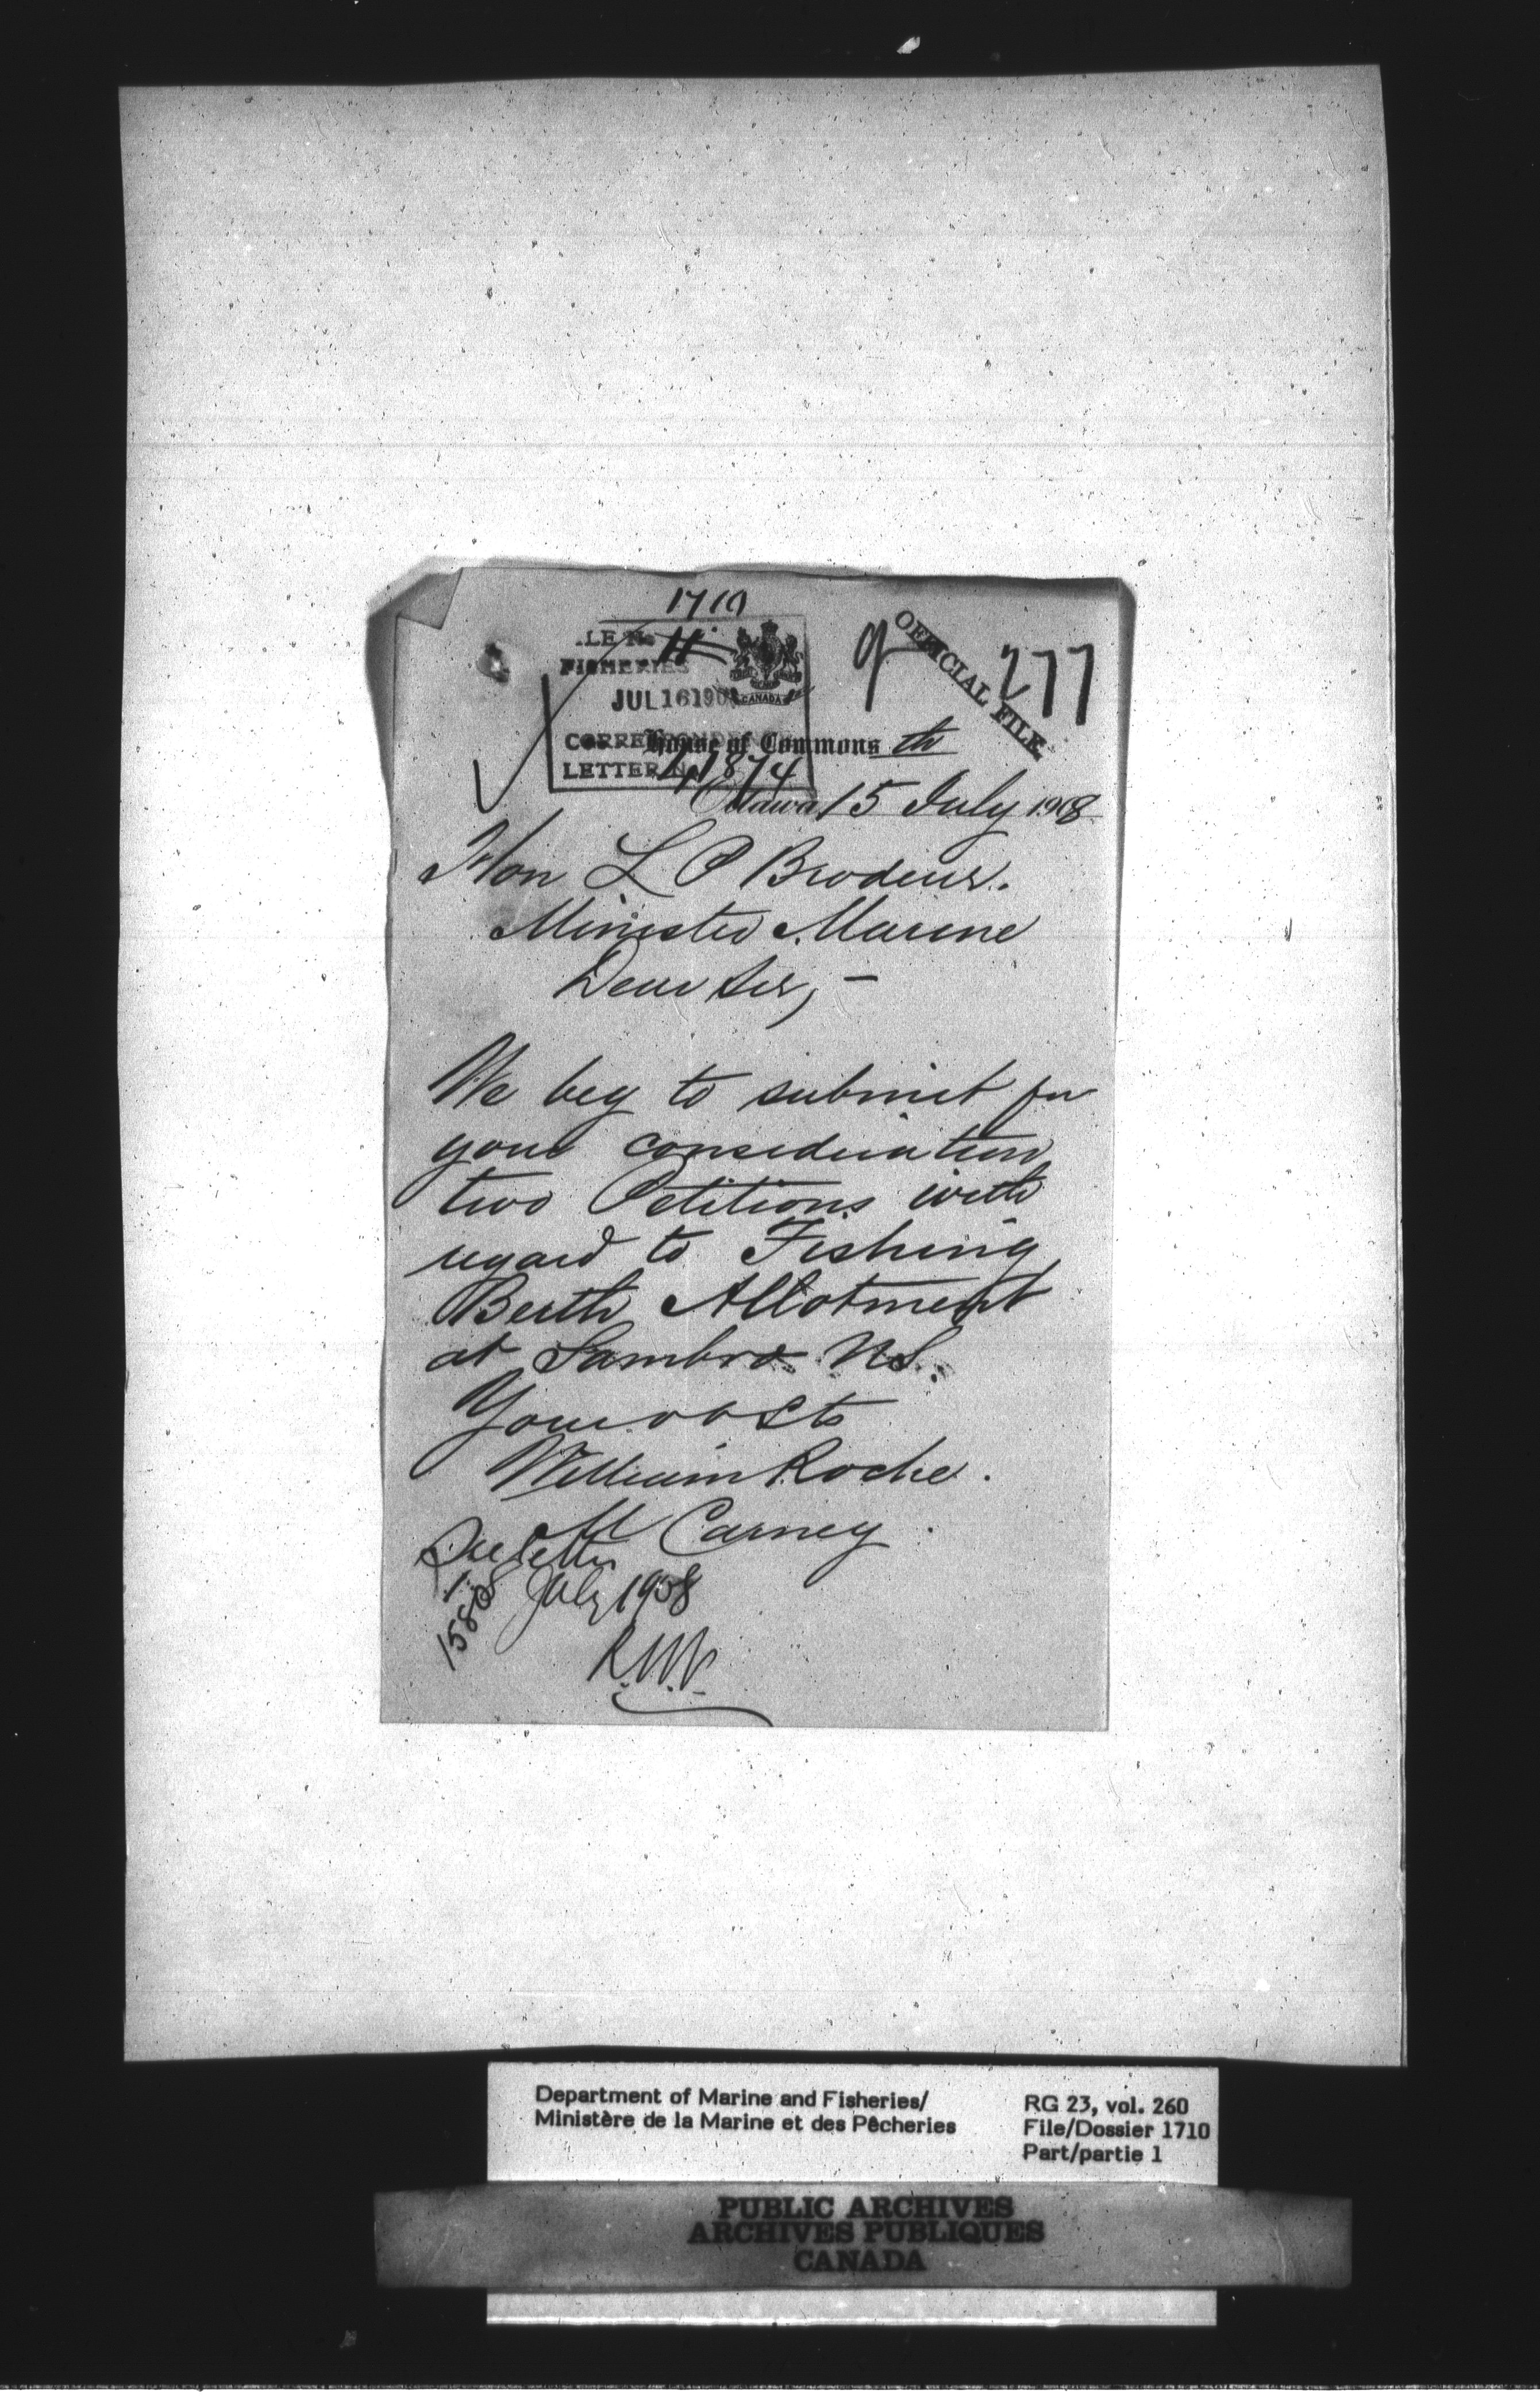 1710
FILE No 11
FISHERIES
JUL 16 1908
CANADA
CORRESPONDENCE
LETTER No 41874
277
OFFICIAL FILE
House of Commons
Ottawa 15th July 1908
Hon L P Brodeur.
Minister Marine
Dear Sir, –
We beg to submit for
your consideration
two Petitions with
regard to Fishing
Berth Allotment
at Sambro NS.
Your obdt
William Roche.
M Carney.
See letter
July 1908
Department of Marine and Fisheries/
Ministère de la Marine et des Pêcheries
RG 23, vol. 260
File/Dossier 1710
Part/partie 1
PUBLIC ARCHIVES
ARCHIVES PUBLIQUES
CANADA